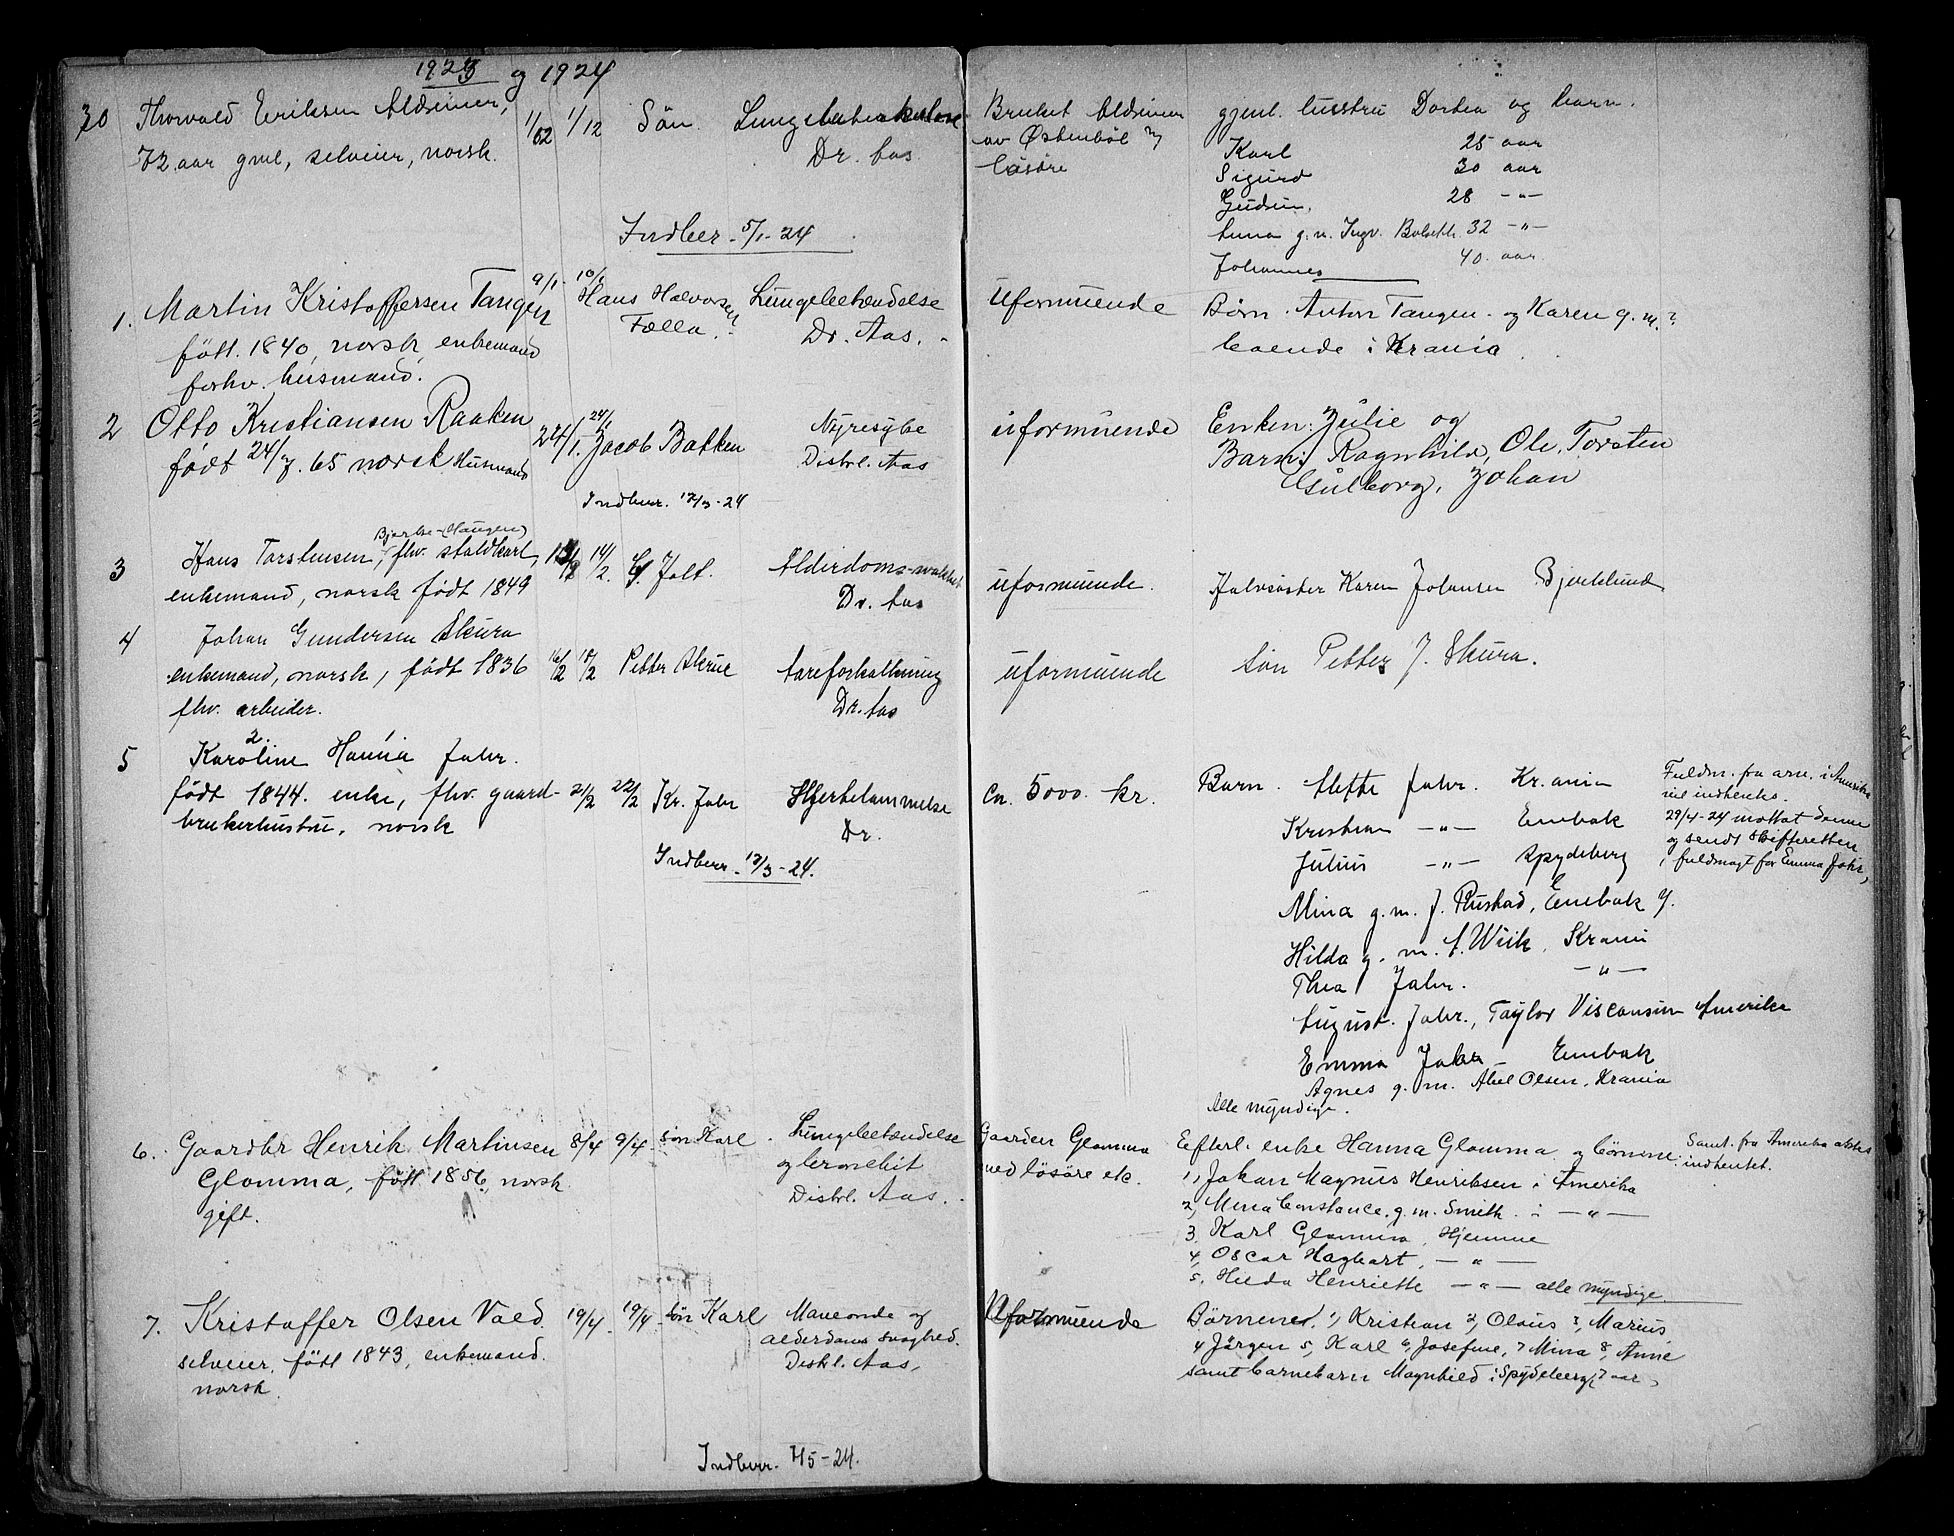 1923 og 1924
30 Thorvald Eriksen
72 aar gml, selveier, norsk.
1/12 1/12 Sön. Lungetuberkulose
Dr. Aas
Bruket
av Østenböl m/
lösöre
gjenl. hustru Dorthea og barn.
Karl 25 aar
Sigurd 30 aar
Gudrun 28 -"-
Anna g.m. Ingv. 32 -"-
Johannes 40 aar
Indber. 5/1-24
1. Martin Kristoffersen Tangen
född. 1840, norsk, enkemand
forhv. husmand.
9/1. 10/1 Hans Halvorsen
Fælla.
Lungebetændelse
Dr. Aas.
Uformuende
Börn. Anton Tangen. og Karen g.m.?
boende i Krania.
2 Otto Kristiansen Raaken
födt 24/7. 65 norsk Husmand
24/1. 24/1 Jacob Bakken
Nyresyke
Distrl. Aas
uformuende
Enken: Julie og
Barn: Ragnhild, Ole, Torsten
Gulborg, Johan
Indberr. 17/3-24
Bjerke-(Haugen)
3 Hans Torstensen, fhv. staldkarl,
enkemand, norsk födt 1849
13/2 14/2. Jolt.
Alderdoms-svakhet
Dr. Aas
uformuende.
Halvsöster Karen Johansen Bjerklund
4 Johan Gundersen Skura
enkemand, norsk, födt 1836
fhv. arbeider.
16/2 18/2 Petter Skrue
Aareforkalkning
Dr. Aas
uformuende
Sön Petter J. Skura.
5 Karoline Hanna Jahr.
födt 1844. enke, fhv. gaard-
brukerhustru, norsk
21/2 22/2 Kr. Jahr
Hjertelammelse
Dr.
Indberr. 17/3-24.
Ca. 5000. kr.
Barn. Jahr. Kr.ania
Kristian -"- Enebak
Julius -"- Spydeberg
Mina g.m. J. Rustad, Enebak
Hilda g.m. A. Wiik, Krania
Thea Jahr. -"-
August. Jahr., Taylor Visconsin Amerika
Emma Jahr - Enebak
Agnes g.m. Abel Olsen, Krania
Alle myndige.
Fuldm. fra arv. i Amerika
vil indhentes.
29/4-24 mottat denne
og sendt skifteretten
, fuldmagt for Emma Jahr,
6. Gaardbr Henrik Martinsen
Glomma, född 1856, norsk
gift.
8/4 9/4- sön Karl.
Lungebetændelse
og bronchit
Distrl. Aas.
Gaarden Glomma
med lösöre etc.
Efterl. enke Hanna Glomma og börnene:
1, Johan Magnus Henriksen i Amerika
2, Mina Constance, g.m. Smith. i -"-
3. Karl Glomma, Hjemme
4, Oscar Hagbart, -"-
5. Hilda Henriette -"- alle myndige.
Samt. fra Amerika
indhentet.
7. Kristoffer Olsen Vold.
selveier, född 1843, enkemand.
norsk.
19/4 19/4- sön Karl
Maveonde og
alderdoms svaghed.
Distrl. Aas,
Uformuende
Börnene, 1, Kristian 2, Olaus 3, Marius,
4 Jörgen 5, Karl 6, Josefine, 7 Mina 8, Anne
samt barnebarn Magnhild i Spydeberg 7 aar,
Indberr. 7/5-24.